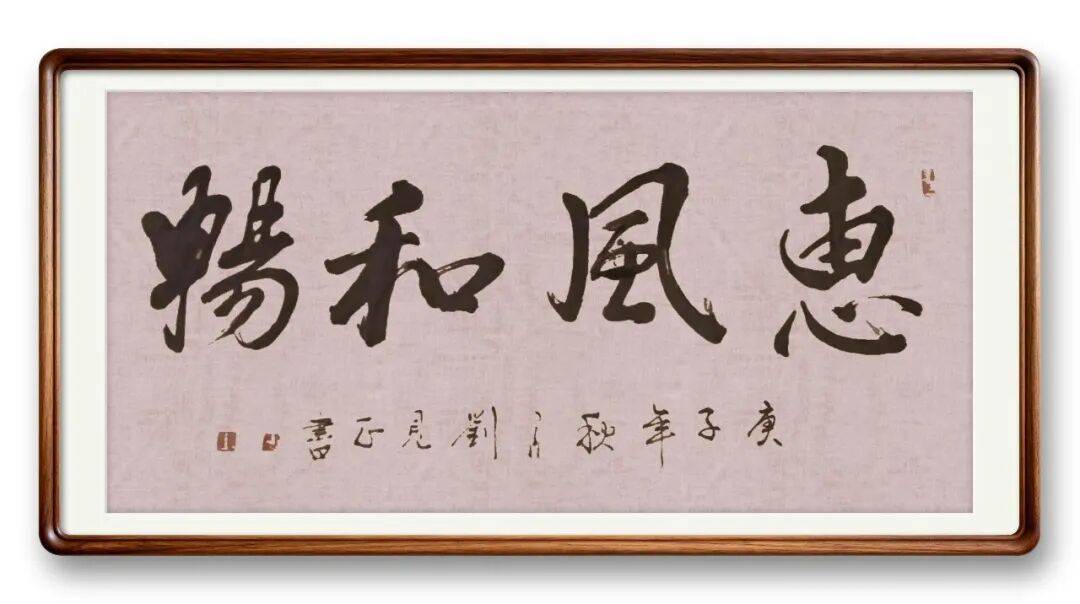 惠風和暢
庚子年秋月劉見正書